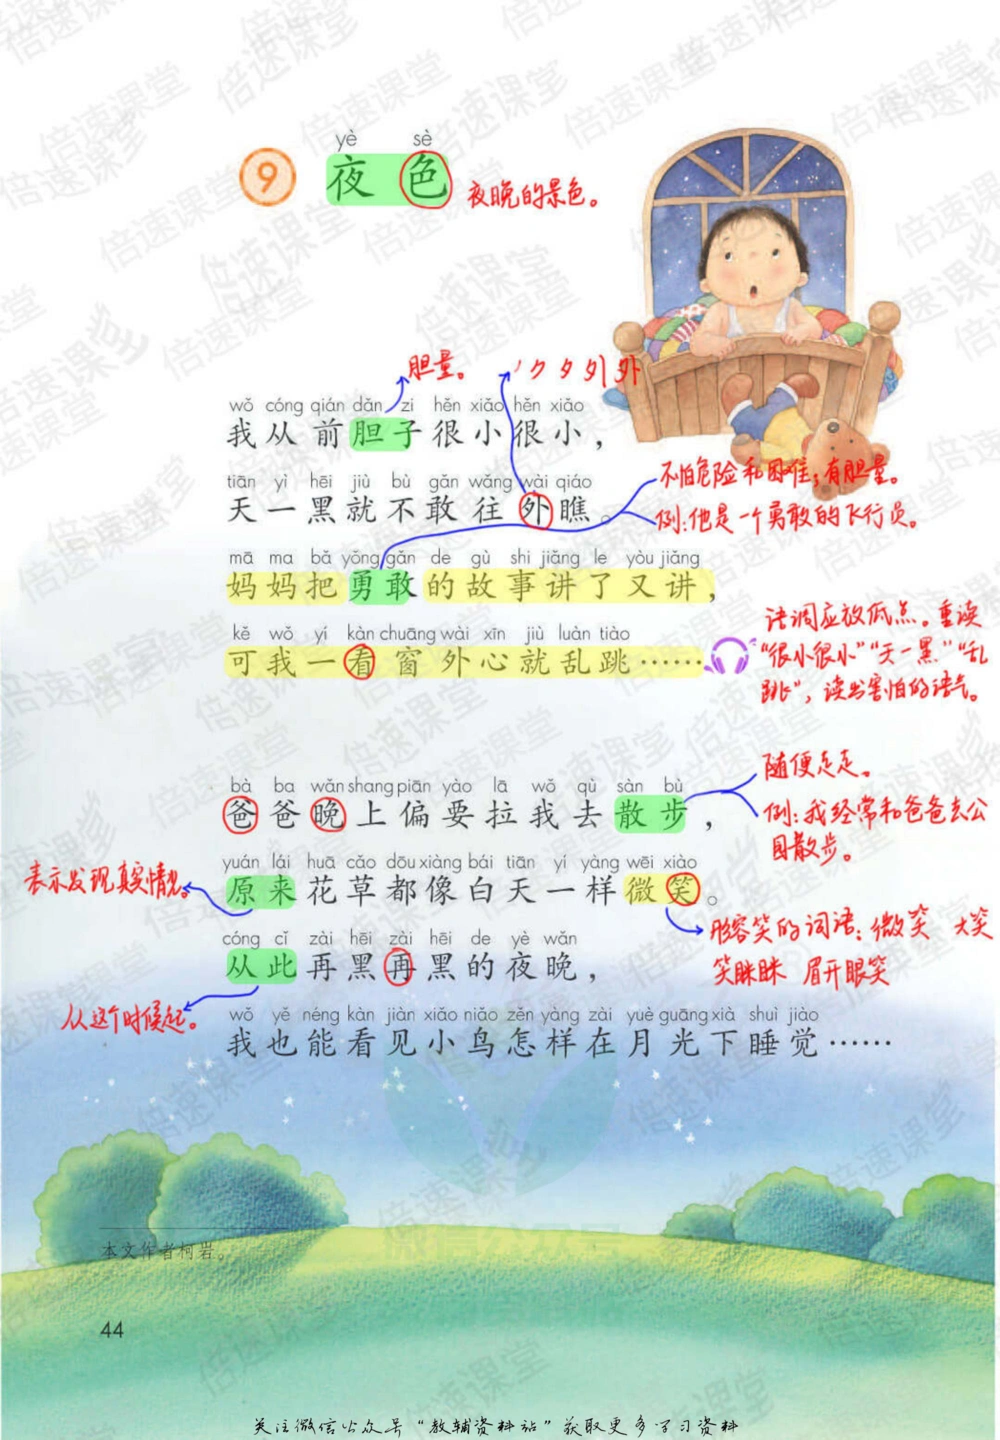 yè sè
9 夜色
夜晚的景色。
胆量。
丿 ク 夕 外 外
wǒ cóng qián dǎn zi hěn xiǎo hěn xiǎo
我从前胆子很小很小，
tiān yì hēi jiù bù gǎn wǎng wài qiáo
天一黑就不敢往外瞧。
不怕危险和困难；有胆量。
例：他是一个勇敢的飞行员。
mā ma bǎ yǒng gǎn de gù shi jiǎng le yòu jiǎng
妈妈把勇敢的故事讲了又讲，
kě wǒ yí kàn chuāng wài xīn jiù luàn tiào
可我一看窗外心就乱跳……
语调应放低点。重读
“很小很小”“天一黑”“乱
跳”，读出害怕的语气。
bà ba wǎn shang piān yào lā wǒ qù sàn bù
爸爸晚上偏要拉我去散步，
随便走走。
例：我经常和爸爸去公
园散步。
yuán lái huā cǎo dōu xiàng bái tiān yí yàng wēi xiào
原来花草都像白天一样微笑。
表示发现真实情况。
形容笑的词语：微笑 大笑
笑眯眯 眉开眼笑
cóng cǐ zài hēi zài hēi de yè wǎn
从此再黑再黑的夜晚，
从这个时候起。
wǒ yě néng kàn jiàn xiǎo niǎo zěn yàng zài yuè guāng xià shuì jiào
我也能看见小鸟怎样在月光下睡觉……
本文作者柯岩。
44
关注微信公众号“教辅资料站”获取更多学习资料
倍速课堂